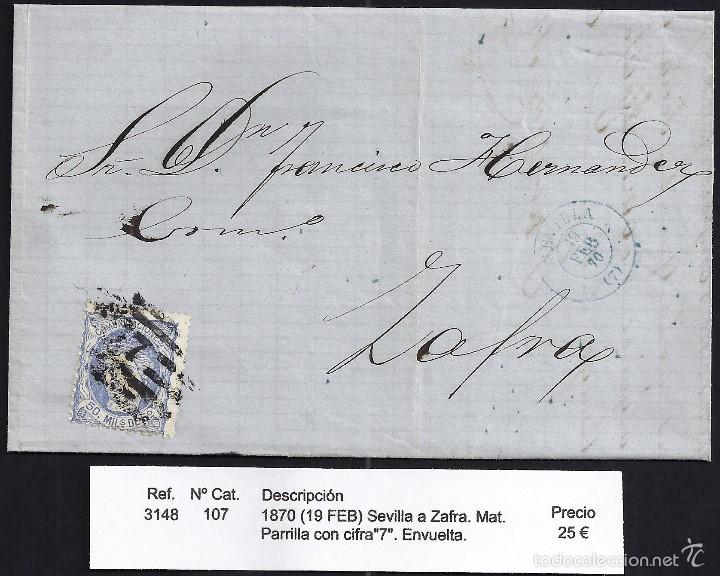 Sr. Dn. Francisco Hernandez
Como
Zafra
SEVILLA
19
FEB
70
(7)
COMUNICACIONES
50. MILS DE E
Ref. Nº Cat. Descripción
3148 107 1870 (19 FEB) Sevilla a Zafra. Mat. Precio
Parrilla con cifra"7". Envuelta. 25 €
todocoleccion